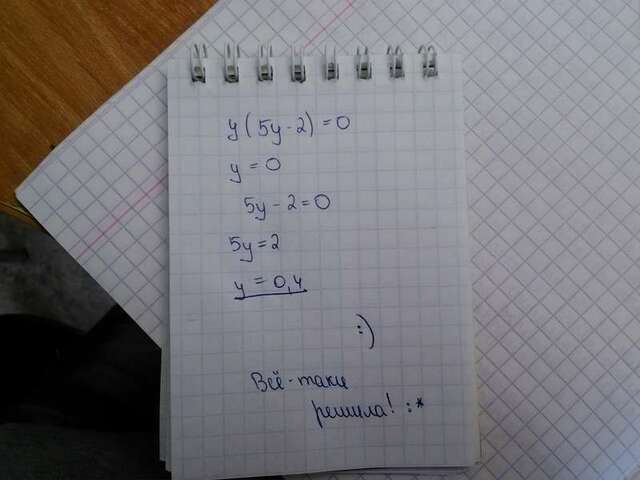 y(5y-2)=0
y=0
5y-2=0
5y=2
y=0,4
:)
Всё-таки
решила! :*